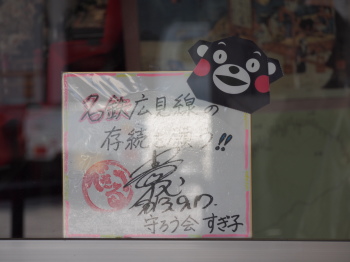 名鉄広見線の
存続を願う!!
守ろう会 すぎ子